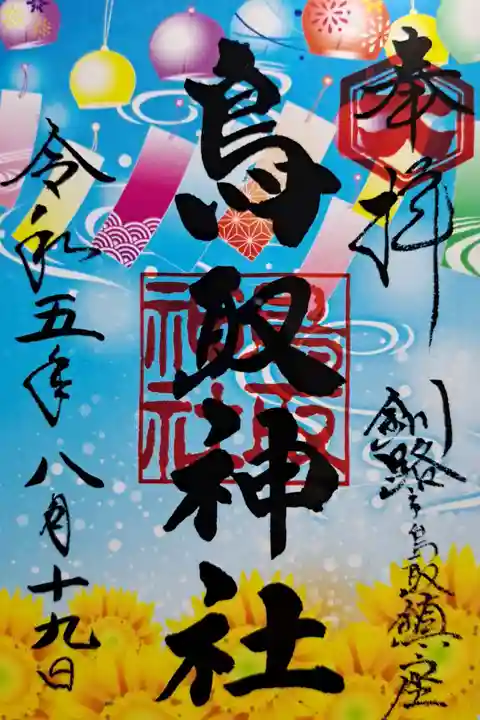 奉拝
釧路市鳥取鎮座
鳥取神社
鳥取神社
令和五年八月十九日